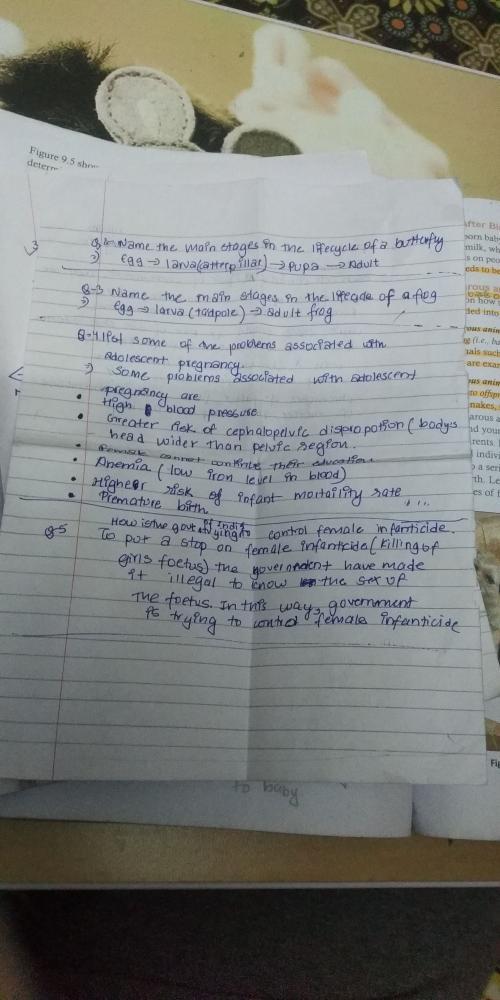 Figure 9.5 sho
determ
3
Q-2 Name the main stages in the lifecycle of a butterfly
Egg → larva(catterpillar) → pupa → Adult
Q-3 Name the main stages in the lifecycle of a frog
Egg → larva (tadpole) → adult frog
Q-4 list some of the problems associated with
adolescent pregnancy.
Some problems associated with adolescent
pregnancy are
• High blood pressure
• Greater risk of cephalopelvic dispropotion (body's
head wider than pelvic region.
• Female cannot continue their education
• Anemia (low iron level in blood)
• Higher risk of infant mortaility rate
• Premature birth. ....
Q-5 How is the govt of india trying to control female infanticide.
To put a stop on female infanticide (killing of
girls foetus) the government have made
it illegal to know the sex of
The foetus. In this way, government
is trying to control female infanticide
to baby
After Bi
born bab
milk, wh
s on peo
eds to be
rous a
on how
ded into
ous anim
g (i.e., ha
als suc
are exam
ous anim
to offspr
nakes,
arous a
nd your
rents
indivi
o a seri
th. Le
es of
Fig